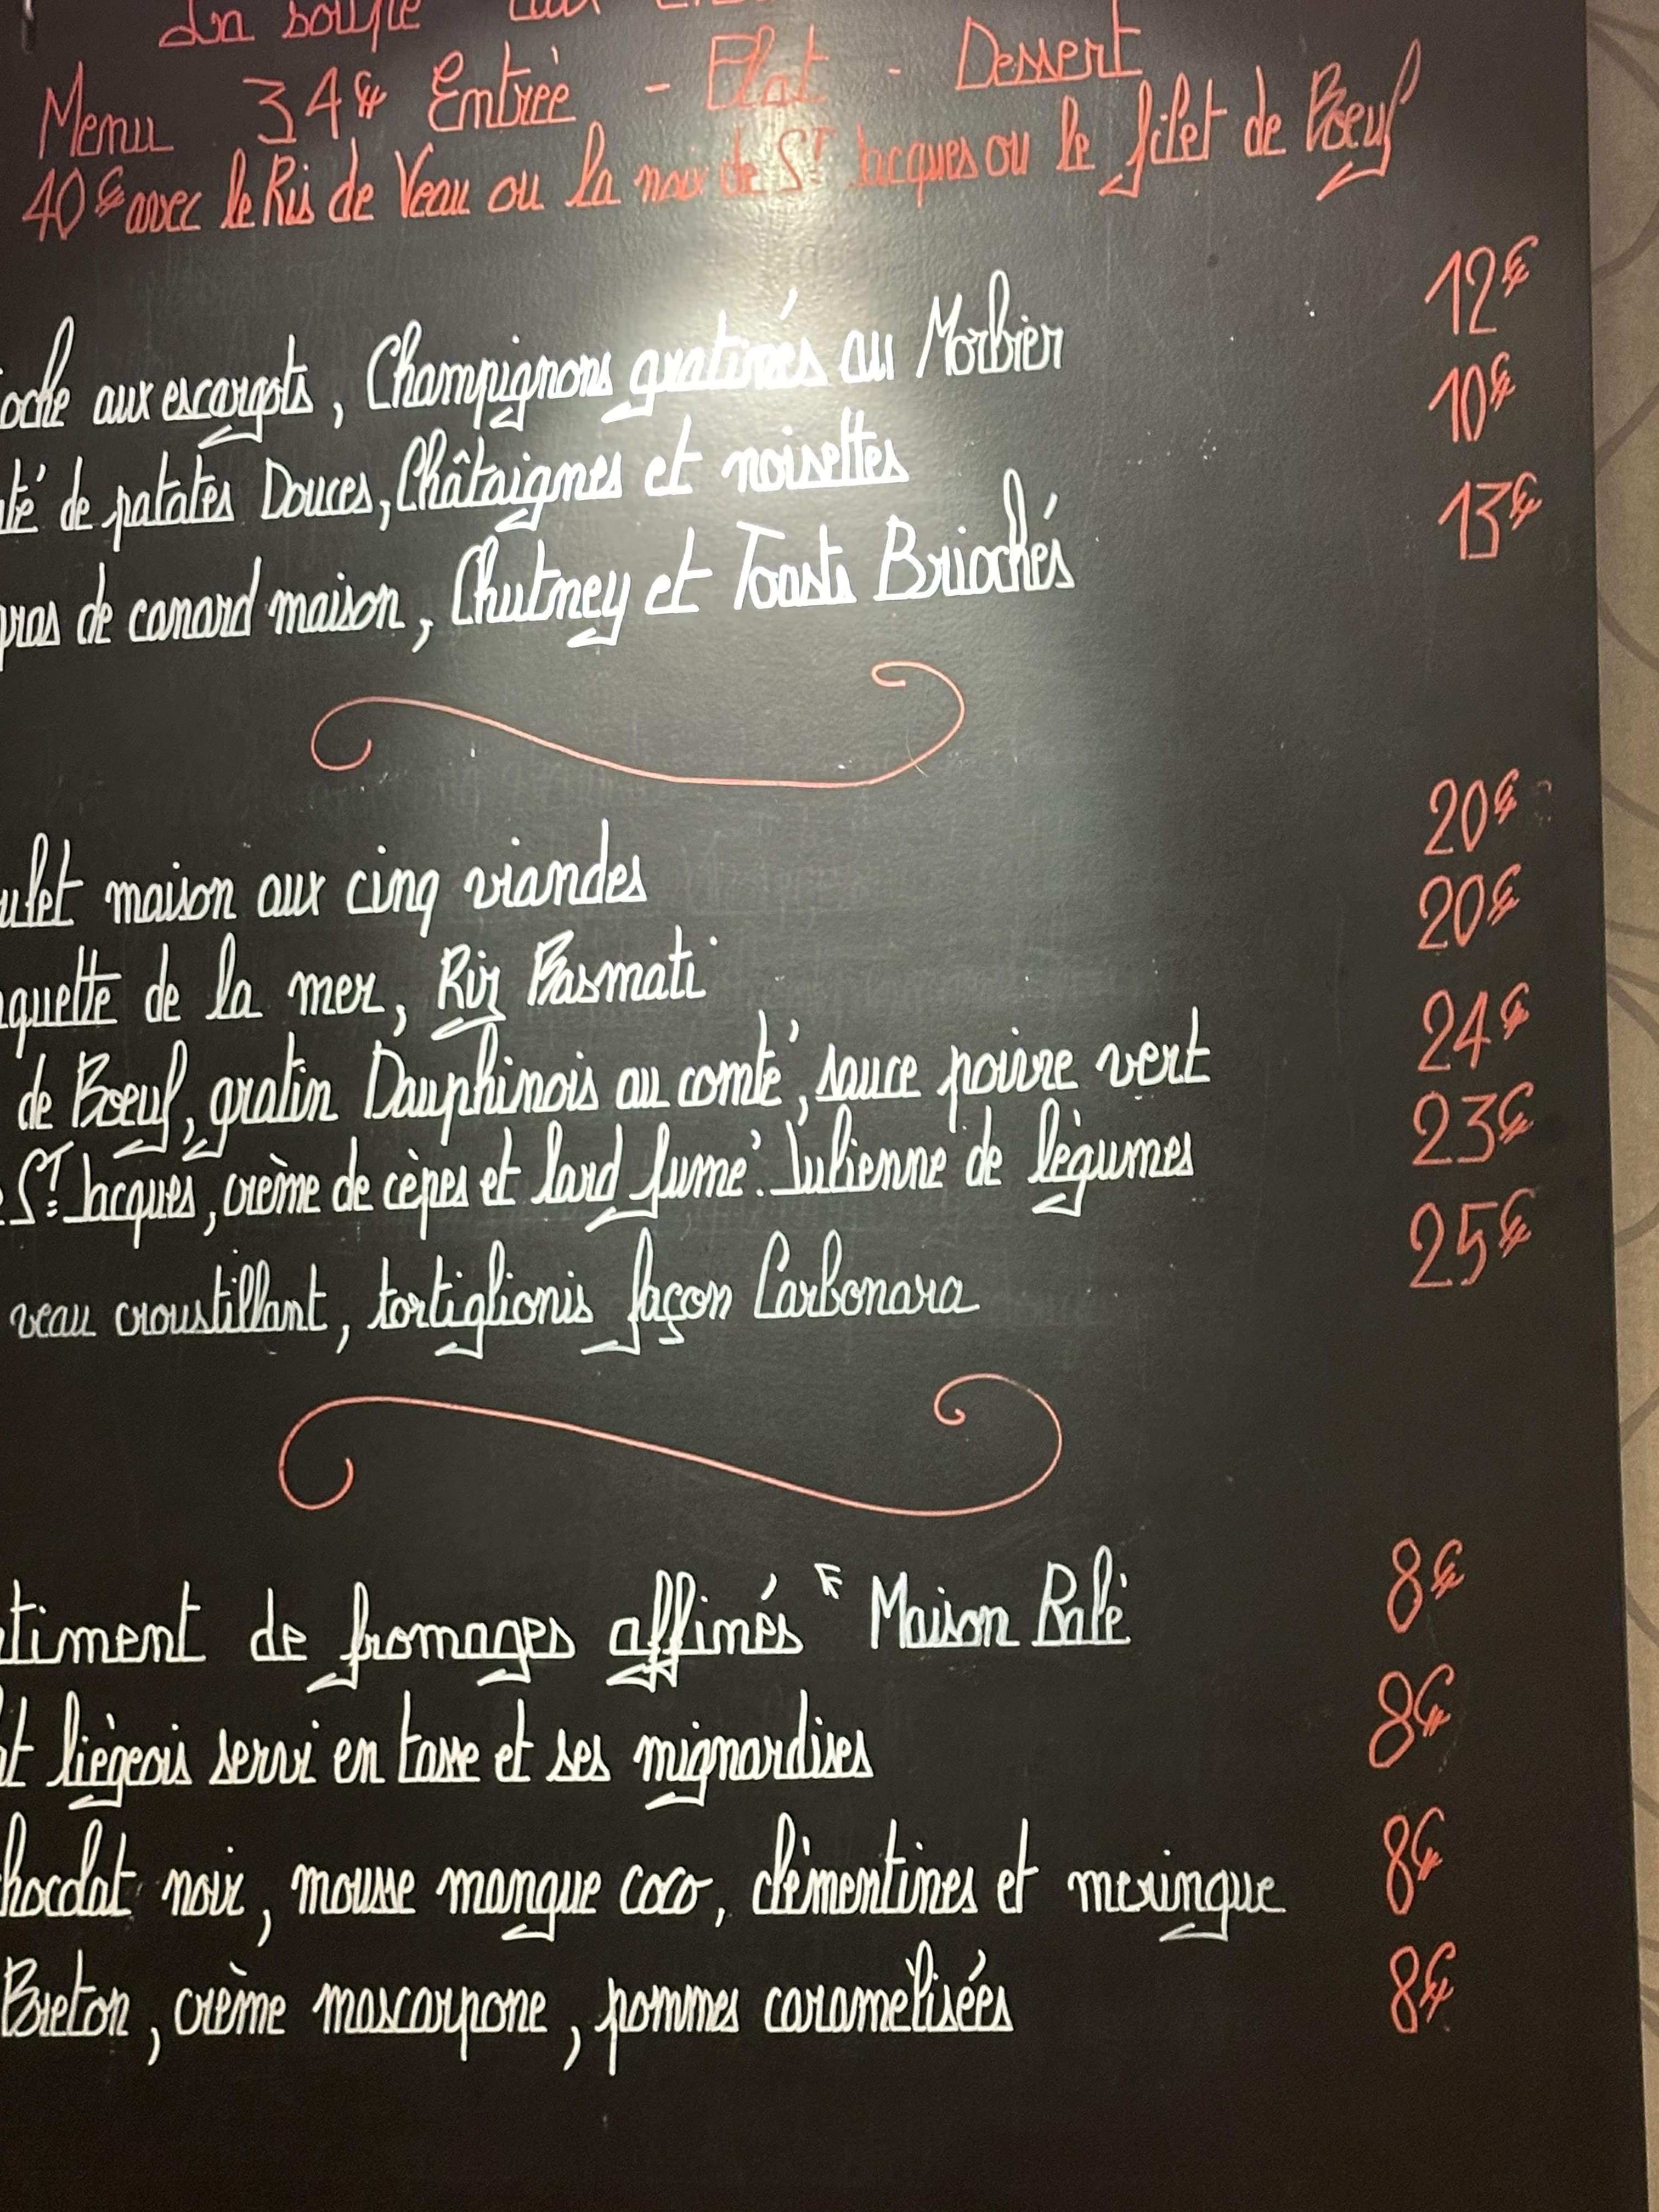 La soupe aux
Menu 34€ Entrée - Plat - Dessert
40€ avec le Ris de Veau ou la noix de St Jacques ou le filet de Boeuf
oche aux escargots, Champignons gratinés au Morbier 12€
té de patates Douces, Châtaignes et noisettes 10€
gras de canard maison, Chutney et Toasts Briochés 13€
ulet maison aux cinq viandes 20€
quette de la mer, Riz Basmati 20€
de Boeuf, gratin Dauphinois au comté, sauce poivre vert 24€
St Jacques, crème de cèpes et lard fumé. Julienne de légumes 23€
veau croustillant, tortiglionis façon Carbonara 25€
timent de fromages affinés " Maison Balé 8€
t liégeois servi en tasse et ses mignardises 8€
hocolat noix, mousse mangue coco, clémentines et meringue 8€
Breton, crème mascarpone, pommes caramélisées 8€